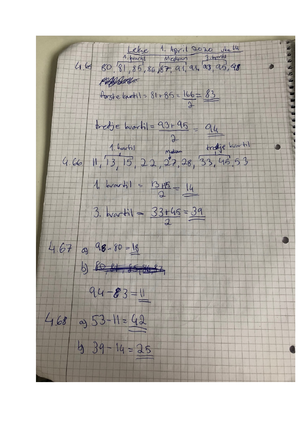 Lekse 1. April 2020
1. kvartil Median 3. kvartil
4.65 80, 81, 85, 86, 87, 91, 93, 95, 98
første kvartil = 81+85 = 166 = 83
2
tredje kvartil = 93+95 = 94
2
1. kvartil Median tredje kvartil
4.66 11, 13, 15, 22, 27, 28, 33, 45, 53
1. kvartil = 13+15 = 14
2
3. kvartil = 33+45 = 39
2
4.67 a) 98-80 = 18
b)
94-83 = 11
4.68 a) 53-11 = 42
b) 39-14 = 25